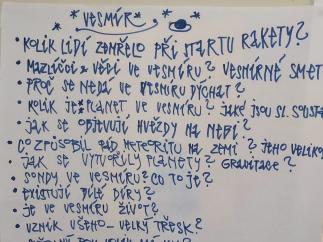 * VESMÍR *
• KOLIK LIDÍ ZEMŘELO PŘI STARTU RAKETY?
• MAZLÍČCI X VĚCI VE VESMÍRU? VESMÍRNÉ SMET
• PROČ SE NEDÁ VE VESMÍRU DÝCHAT?
• KOLIK JE PLANET VE VESMÍRU? JAKÉ JSOU SL. SOUSTA
• JAK SE OBJEVUJÍ HVĚZDY NA NEBI?
• CO ZPŮSOBIL PÁD METEORITU NA ZEMI? JEHO VELIKO
• JAK SE VYTVOŘILY PLANETY? GRAVITACE?
• SONDY VE VESMÍRU? CO TO JE?
• EXISTUJÍ BÍLÉ DÍRY?
• JE VE VESMÍRU ŽIVOT?
• VZNIK VŠEHO - VELKÝ TŘESK?